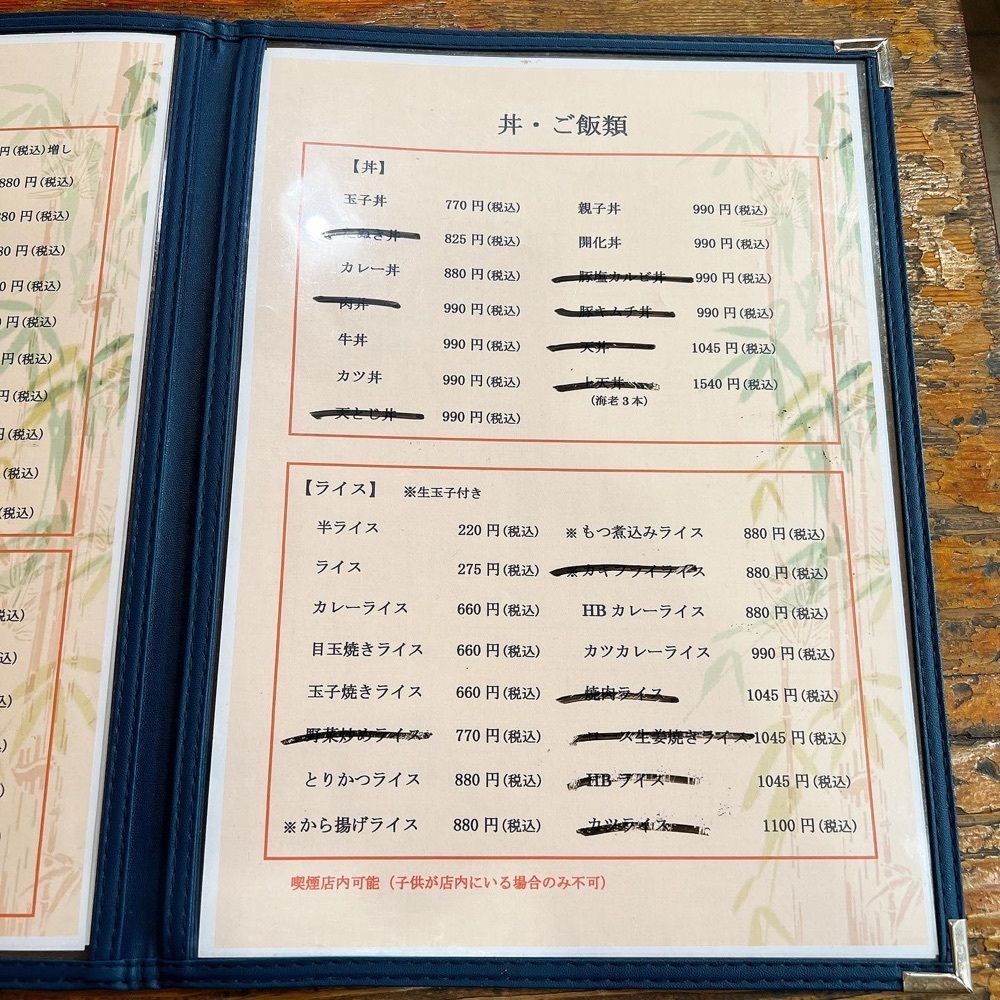 円(税込)増し
880 円(税込)
880 円(税込)
80 円(税込)
0 円(税込)
円(税込)
円(税込)
円(税込)
円(税込)
(税込)
(税込)
税込)
込)
)
)
)
丼・ご飯類
【丼】
玉子丼 770 円(税込) 親子丼 990 円(税込)
たぬき丼 825 円(税込) 開化丼 990 円(税込)
カレー丼 880 円(税込) 豚塩カルビ丼 990 円(税込)
肉丼 990 円(税込) 豚キムチ丼 990 円(税込)
牛丼 990 円(税込) 天丼 1045 円(税込)
カツ丼 990 円(税込) 上天丼 1540 円(税込)
(海老3本)
天とじ丼 990 円(税込)
【ライス】 ※生玉子付き
半ライス 220 円(税込) ※もつ煮込みライス 880 円(税込)
ライス 275 円(税込) ※カキフライライス 880 円(税込)
カレーライス 660 円(税込) HBカレーライス 880 円(税込)
目玉焼きライス 660 円(税込) カツカレーライス 990 円(税込)
玉子焼きライス 660 円(税込) 焼肉ライス 1045 円(税込)
野菜炒めライス 770 円(税込) ロース生姜焼きライス 1045 円(税込)
とりかつライス 880 円(税込) HBライス 1045 円(税込)
※から揚げライス 880 円(税込) カツライス 1100 円(税込)
喫煙店内可能（子供が店内にいる場合のみ不可）